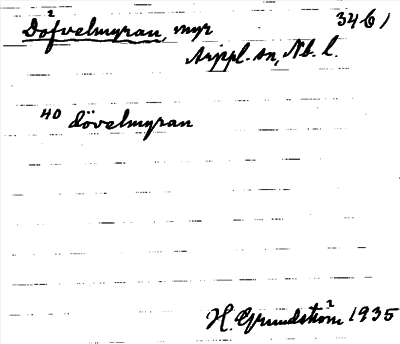 Dofvelmyran, myr 3461
Arjppl. sn, Nb. l.
40 dövelmyran
H. Grundström 1935